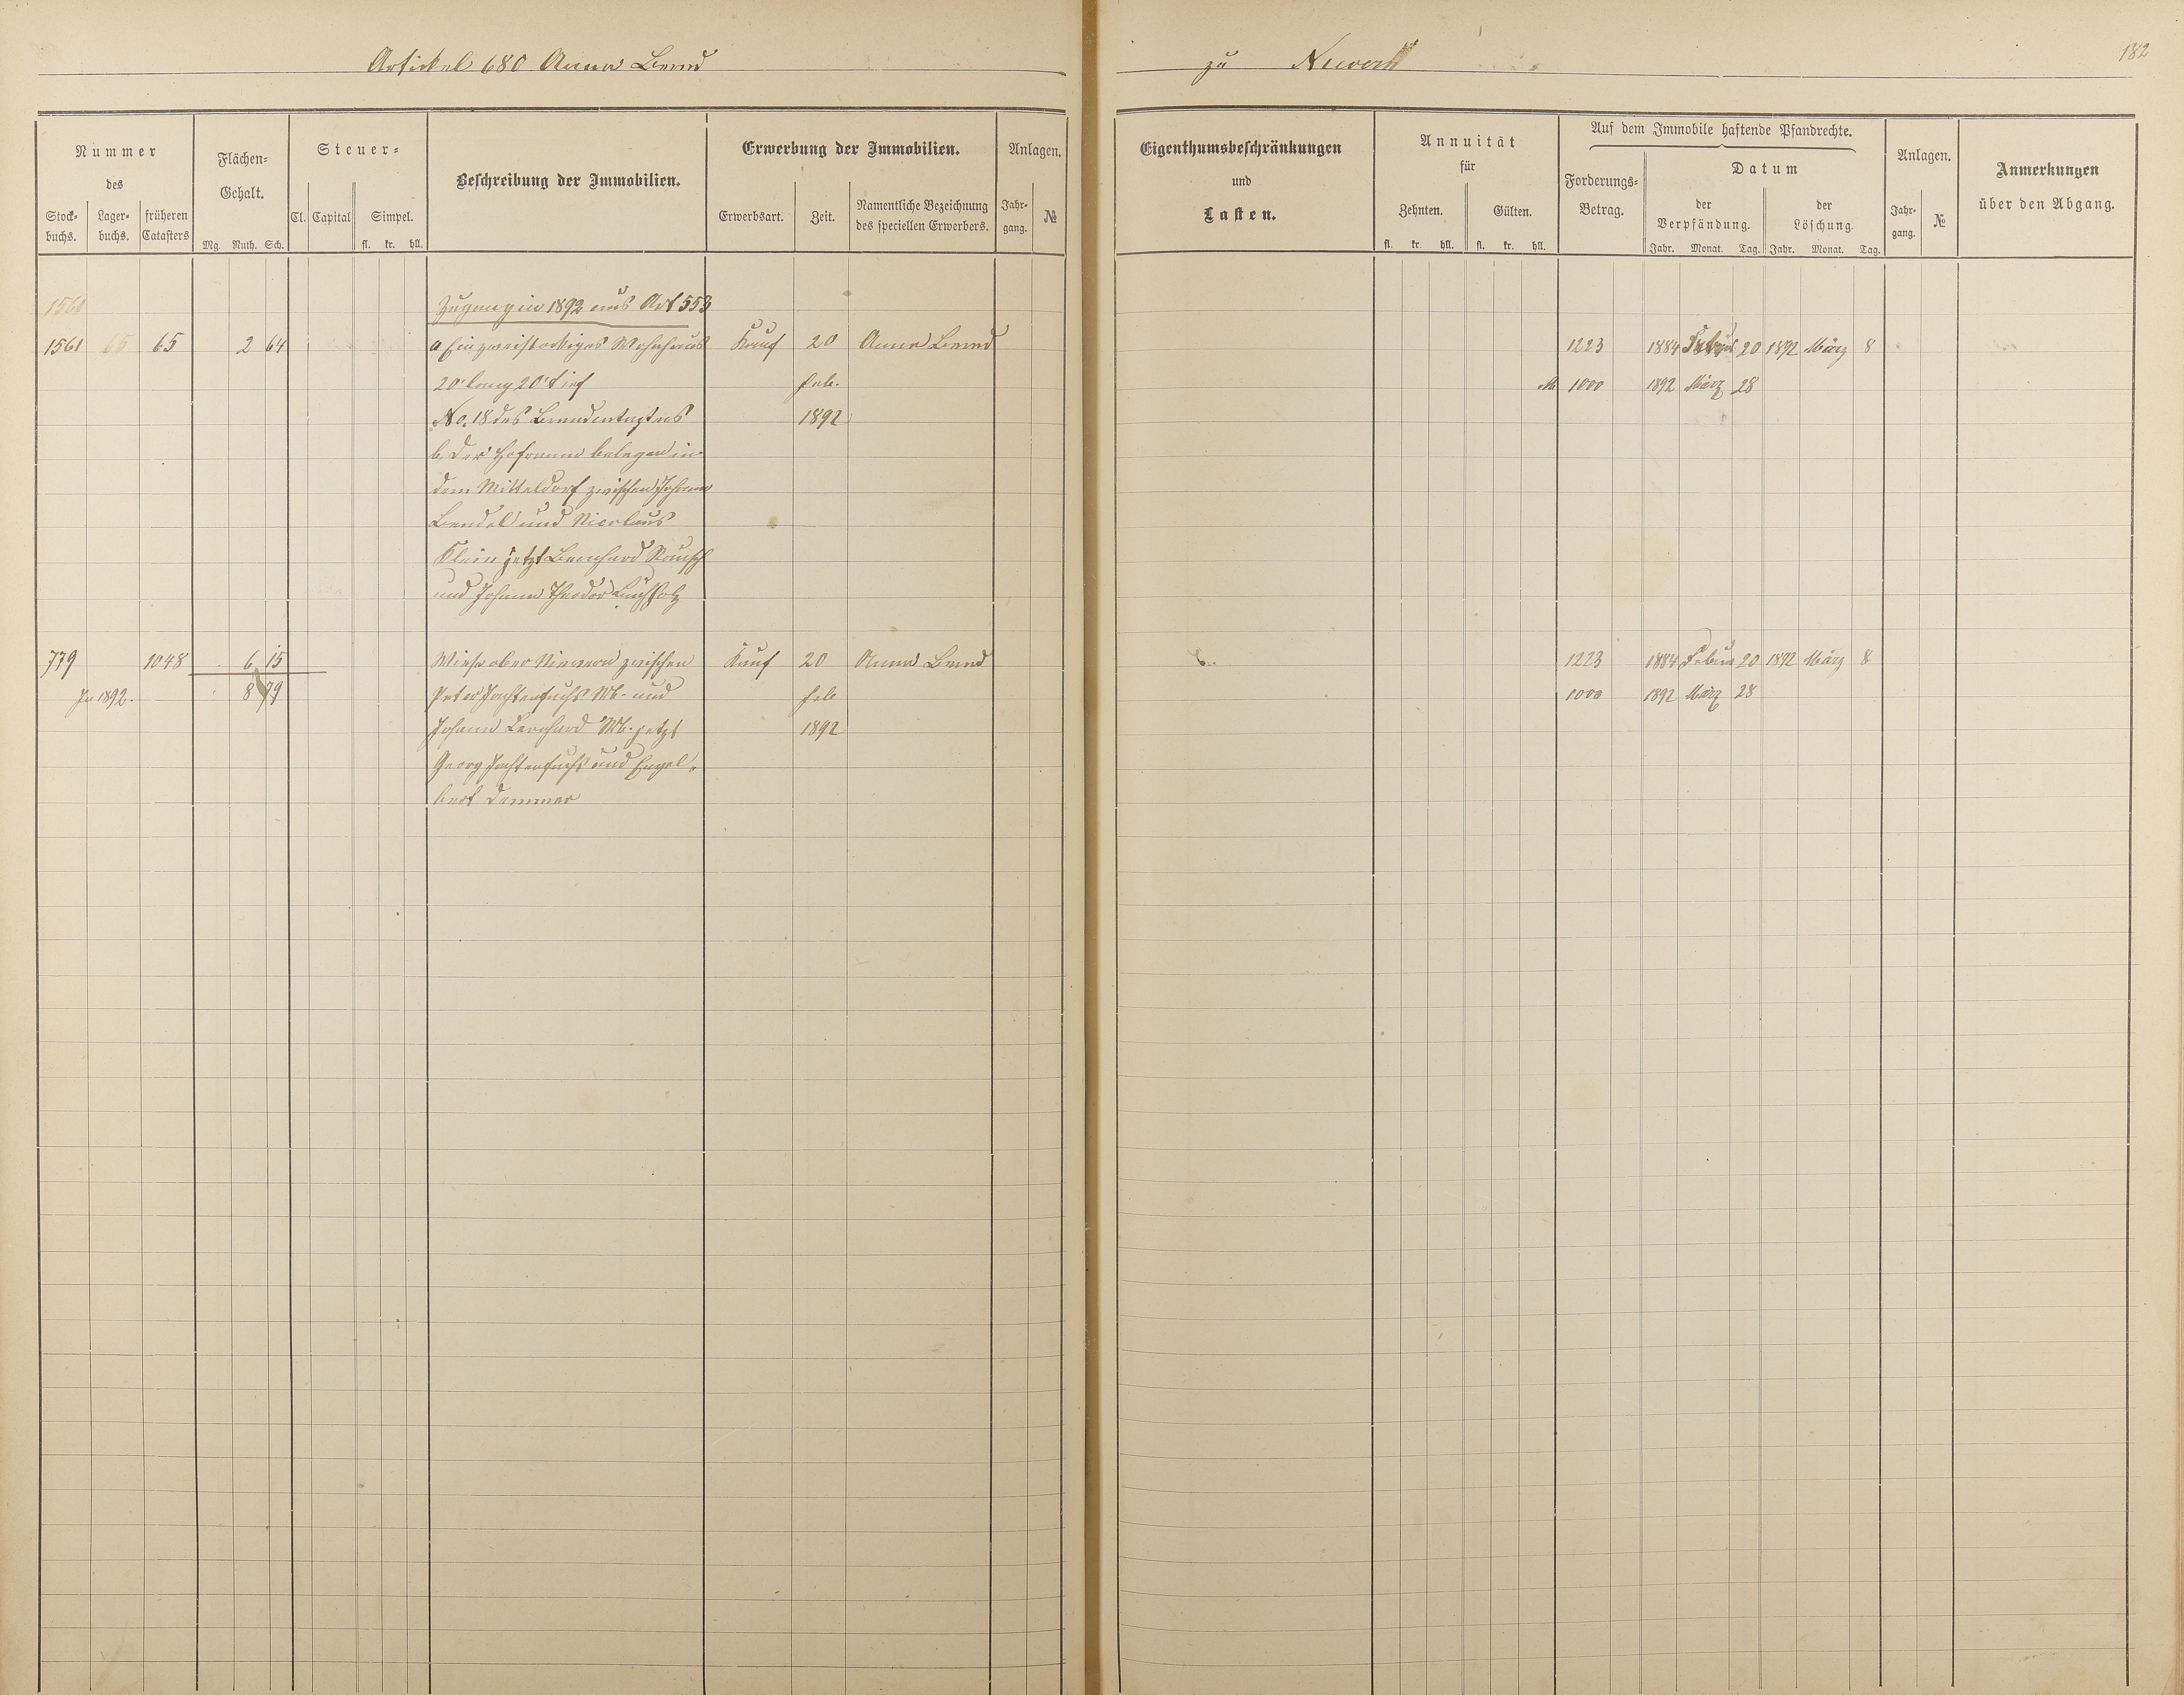 Artickel 680 Anna Bernd
zu Nievern
182
Nummer des
Stockbuchs. Lagerbuchs. früheren Catasters
Flächen-Gehalt.
Mg. Ruth. Sch.
Steuer-
Cl. Capital Simpel.
fl. kr. hll.
Beschreibung der Immobilien.
Erwerbung der Immobilien.
Erwerbsart. Zeit. Namentliche Bezeichnung des speciellen Erwerbers.
Anlagen.
Jahrgang. №
Eigenthumsbeschränkungen
und
Lasten.
Annuität
für
Zehnten. Gülten.
fl. kr. hll. fl. kr. hll.
Auf dem Immobile haftende Pfandrechte.
Forderungs-Betrag.
Datum
der Verpfändung. der Löschung.
Jahr. Monat. Tag. Jahr. Monat. Tag.
Anlagen.
Jahrgang. №
Anmerkungen
über den Abgang.
1561 Zugang in 1892 aus Art 553
1561 65 65 2 64 a Ein zweistockiges Wohnhaus Kauf 20 Anna Bernd 1223 1884 20 1892 März 8
20' lang 20' tief Feb. M 1000 1892 März 28
No. 18 des Brandcatasters 1892
b, Der Hofraum belegen in
dem Mitteldorf zwischen Johann
Bendel und Nicolaus
Klein jetzt Bernhard Rausch
und Johann Theodor Buchholz
779 1048 6 15 Wiese ober Nievern zwischen Kauf 20 Anna Bernd 1223 1884 Februar 20 1892 März 8
In 1892. 8 79 Peter und Feb 1000 1892 März 28
Johann Bernhard jetzt 1892
Georg und Engel-
bert Demmer